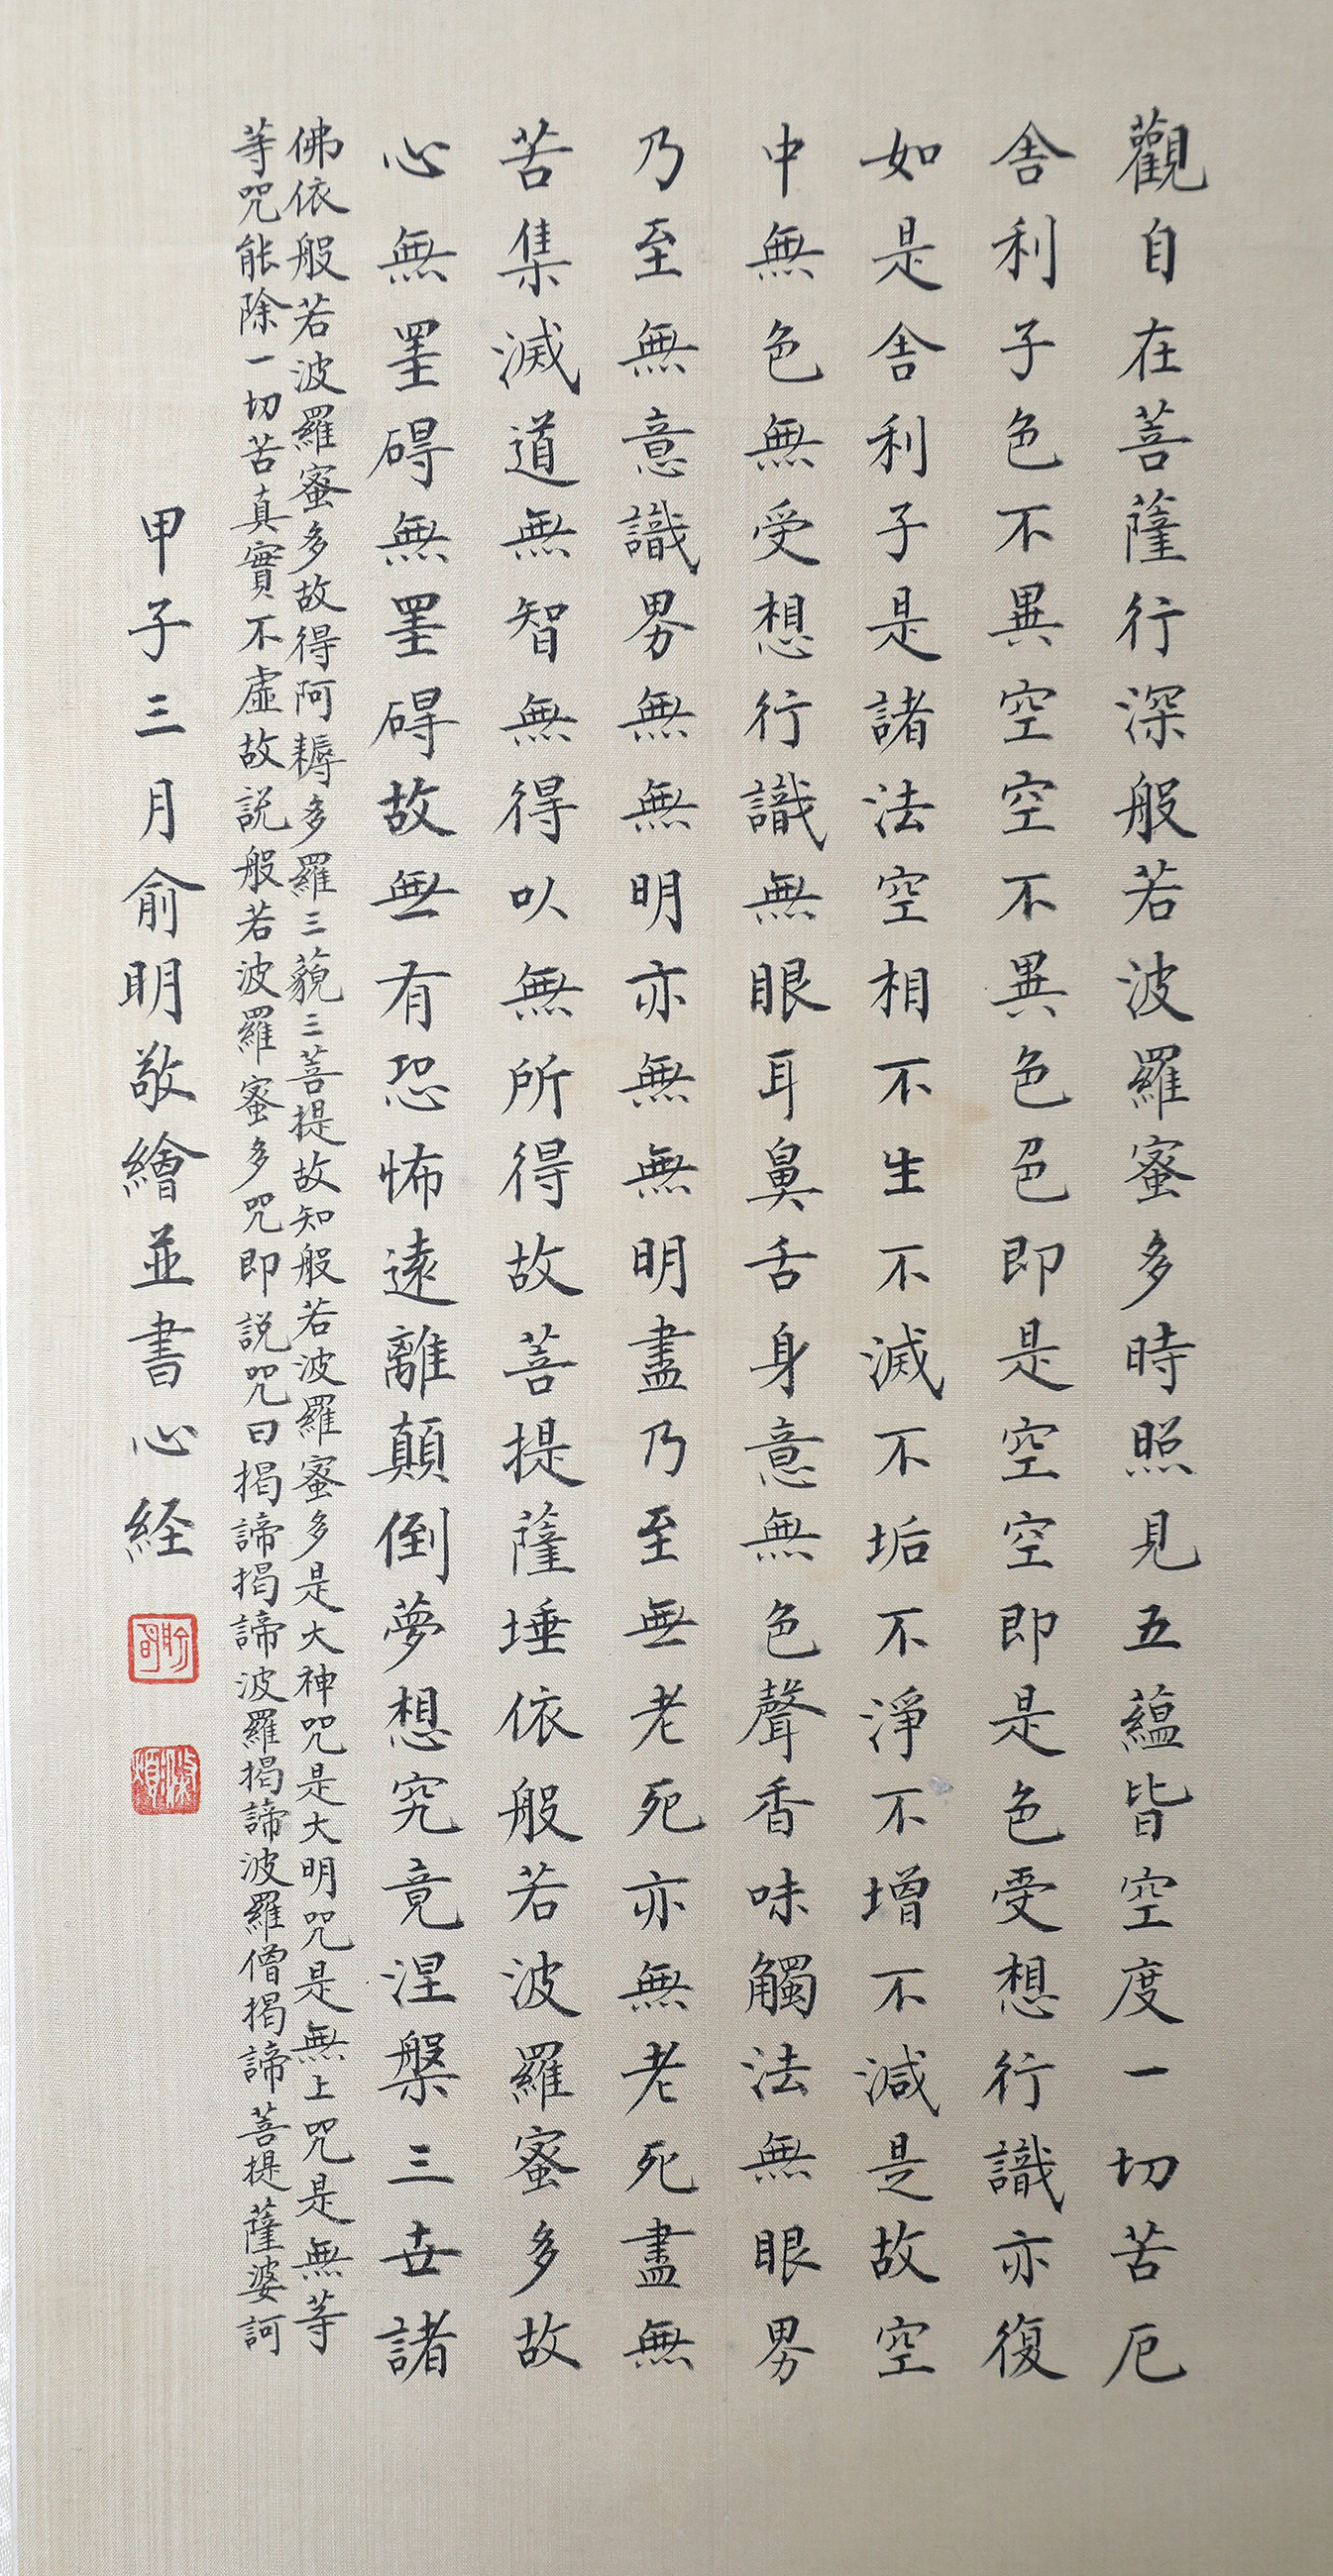 觀自在菩薩行深般若波羅蜜多時照見五蘊皆空度一切苦厄
舍利子色不異空空不異色色即是空空即是色受想行識亦復
如是舍利子是諸法空相不生不滅不垢不淨不增不減是故空
中無色無受想行識無眼耳鼻舌身意無色聲香味觸法無眼界
乃至無意識界無無明亦無無明盡乃至無老死亦無老死盡無
苦集滅道無智無得以無所得故菩提薩埵依般若波羅蜜多故
心無罣碍無罣碍故無有恐怖遠離顛倒夢想究竟涅槃三世諸
佛依般若波羅蜜多故得阿耨多羅三藐三菩提故知般若波羅蜜多是大神咒是大明咒是無上咒是無等
等咒能除一切苦真實不虛故說般若波羅蜜多咒即說咒曰揭諦揭諦波羅揭諦波羅僧揭諦菩提薩婆訶
甲子三月俞明敬繪並書心経